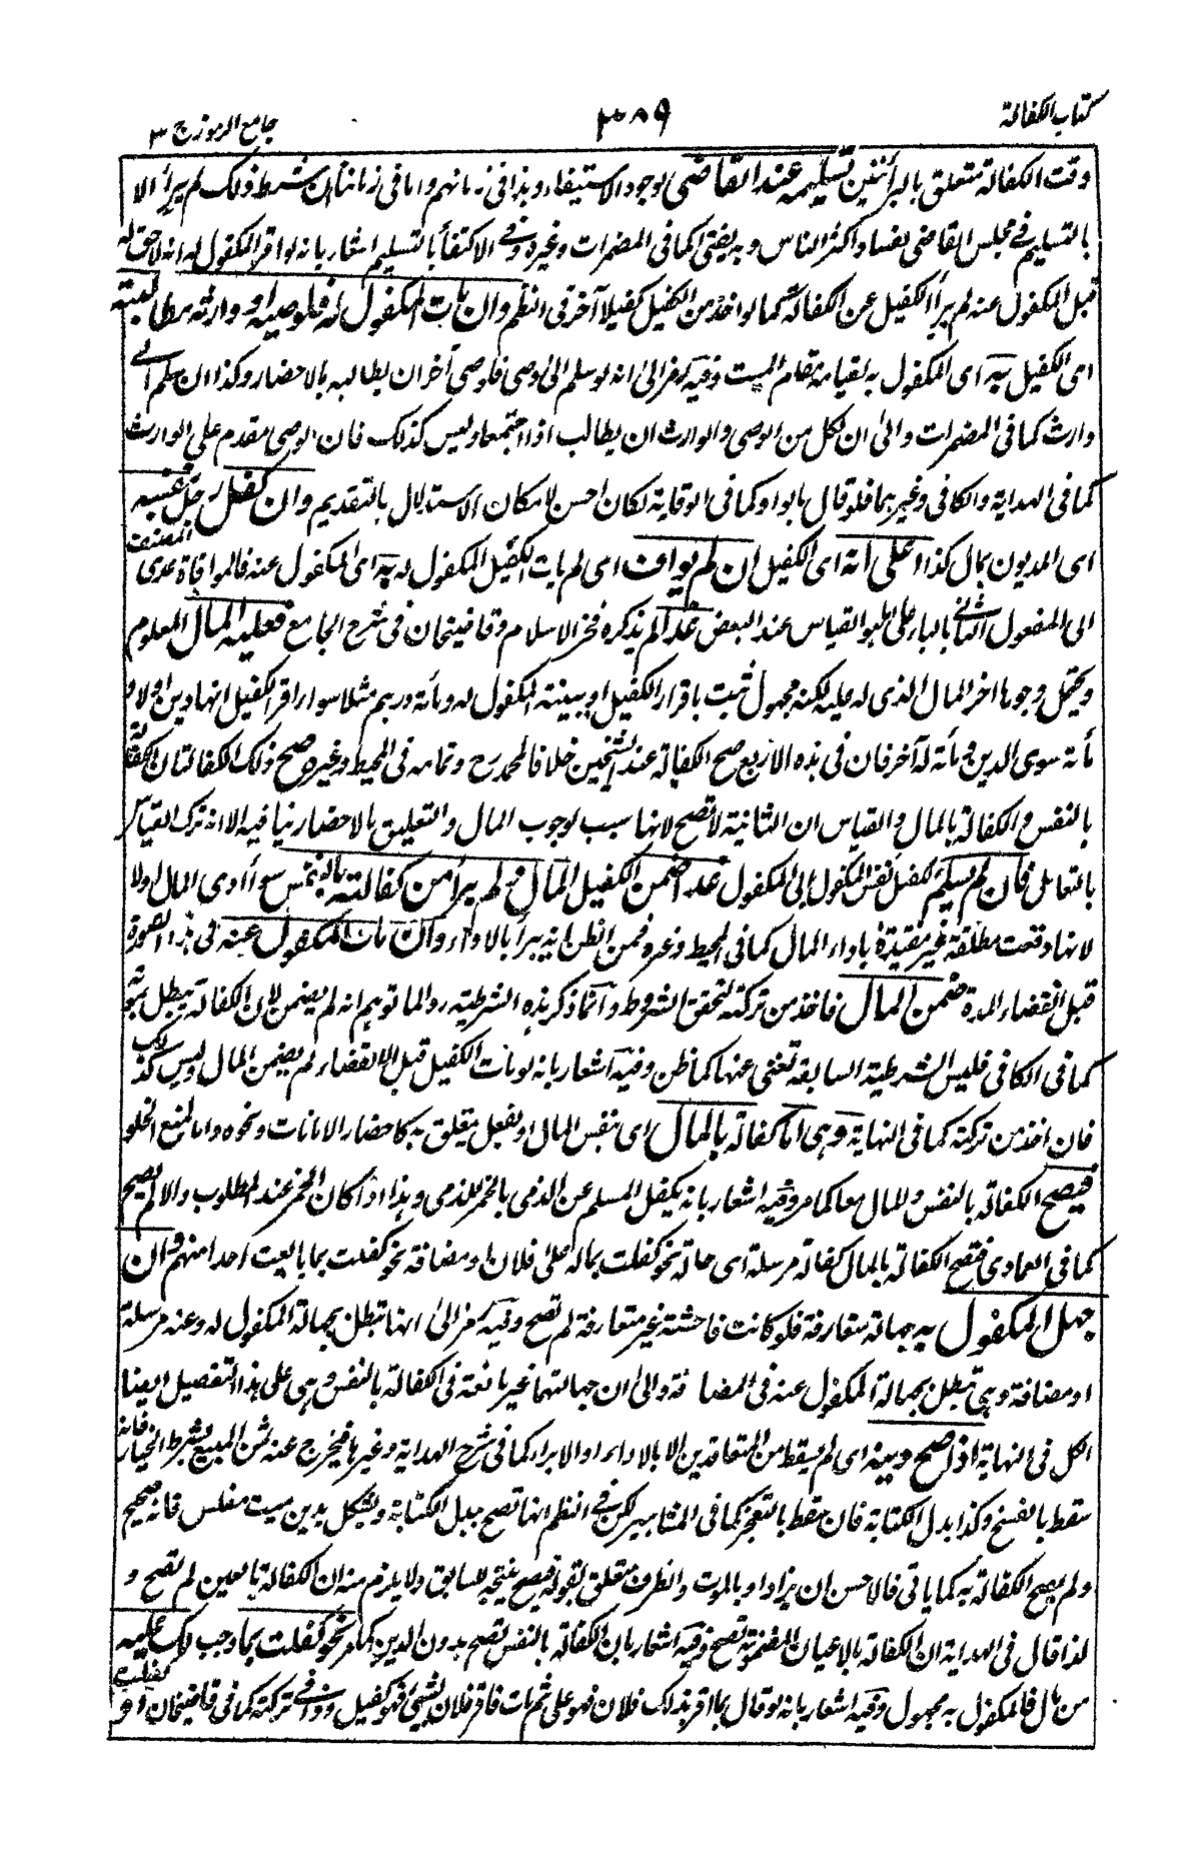 كتاب الكفالة
٣٨٩
جامع الرموز ج ٣
وقت الكفالة متعلق بالبرأتين تسليمه عند القاضى لوجود الاستيفاء وهذا فى زمانهم واما فى زماننا ان شرط ذلك لم يبرأ الا
بالتسليم في مجلس القاضى لفساد اكثر الناس وبه يفتى كما فى المضمرات وغيره وفي الاكتفاء بالتسليم اشعار بانه لو اقر المكفول له انه لا حق له
قبل المكفول عنه لم يبرأ الكفيل عن الكفالة كما لو اخذ من الكفيل كفيلا آخر فى النظم وان مات المكفول له فلوصيه او وارثه مطالبته
اى الكفيل به اى المكفول به لقيامه مقام الميت وفيه رمز الى انه لو سلم الى وصى فلوصى آخر ان يطالبه بالاحضار وكذا ان سلم الى
وارث كما فى المضمرات والى ان لكل من الوصى والوارث ان يطالب اذا اجتمعا وليس كذلك فان الوصى مقدم على الوارث
كما فى الهداية والكافى وغيرهما فلو قال بالواو كما فى الوقاية لكان احسن لامكان الاستدلال بالتقديم وان كفل رجل بنفسه
اى المديون بمال كذا على انه اى الكفيل ان لم يواف اى لم يأت الكفيل المكفول له به اى المكفول عنه فالموافاة عدى المصنف
الى المفعول الثانى بالباء على ما هو القياس عند البعض غدا لم يذكره فخر الاسلام وقاضيخان فى شرح الجامع فعليه المال المعلوم
ويحتمل وجوها اخر المال الذى له عليه لكنه مجهول ثبت باقرار الكفيل او ببينة المكفول له ومأة درهم مثلا سواء اقر الكفيل انها دين اولا و
مأة سوى الدين ومأة له آخر فان فى هذه الاربع صح الكفالة عند الشيخين خلافا لمحمد رح وتمامه فى المحيط وغيره صح ذلك الكفالتان الكفالة
بالنفس والكفالة بالمال والقياس ان الثانية لا تصح لانها سبب لوجوب المال والتعليق بالاحضار ينافيه الا انه ترك القياس
بالتعامل فان لم يسلم كفيل نفس المكفول الى المكفول غدا ضمن الكفيل المال ولم يبرأ من كفالته بالنفس سواء ادى المال او لا
لانها وقعت مطلقة غير مقيدة باداء المال كما فى المحيط وغيره فمن الظن انه يبرأ بالاداء وان مات المكفول عنه فى هذه الصورة
قبل انقضاء المدة ضمن المال فاخذ من تركته لتحقق الشروط وانما ذكر هذه الشرطية رد الما توهم انه لم يضمن لان الكفالة تبطل بموته
كما فى الكافى فليس الشرطية السابقة تغنى عنها كما ظن وفيه اشعار بانه لو مات الكفيل قبل الانقضاء لم يضمن المال وليس كذلك
فان اخذ من تركته كما فى النهاية وهى اما كفالة بالمال اى بنفس المال او بفعل يتعلق به كاحضار الامانات ونحوه واما لمنع الخلو
فيصح الكفالة بالنفس والمال معا كما مر وفيه اشعار بانه يكفل المسلم عن الذمى بالخمر للذمى وهذا اذا كان الخمر عند المطلوب والا لم يصح
كما فى العمادى فتصح الكفالة بالمال كفالة مرسلة اى حالة نحو كفلت بماله على فلان او مضافة نحو كفلت بما بايعت احدا منهم وان
جهل المكفول به جهالة متعارفة فلو كانت فاحشة غير متعارفة لم تصح وفيه رمز الى انها تبطل بجهالة المكفول له وعنه مرسلة
او مضافة وهى تبطل بجهالة المكفول عنه فى المضافة والى ان جهالتهما غير مانعة فى الكفالة بالنفس وهى على هذا التفصيل ايضا
الكل فى النهاية اذا صح دينه اى لم يسقط من المتعاقدين الا بالاداء او الابراء كما فى شرح الهداية وغيرها فيخرج عنه ثمن المبيع بشرط الخيار فانه
سقط بالفسخ وكذا بدل الكتابة فان سقط بالتعجز كما فى المشاهير لكن في النظم انها تصح ببدل الكتابة ويشكل بدين ميت مفلس فانه صحيح
ولم يصح الكفالة به كما ياتى فالاحسن ان يزاد او بالموت والظرف متعلق بقوله فيصح نتيجة للسابق ولا يلزم منه ان الكفالة بالعين لم تصح و
لذا قال فى الهداية ان الكفالة بالاعيان المضمونة تصح وفيه اشعار بان الكفالة بالنفس تصح بدون الدين كما مر نحو كفلت بما وجب لك عليه
من مال فالمكفول به مجهول وفيه اشعار بانه لو قال بما اقر بذلك فلان فهو على ثم مات فاقر فلان بشئ فهو كفيل وفى تركته كما فى قاضيخان او كفلت